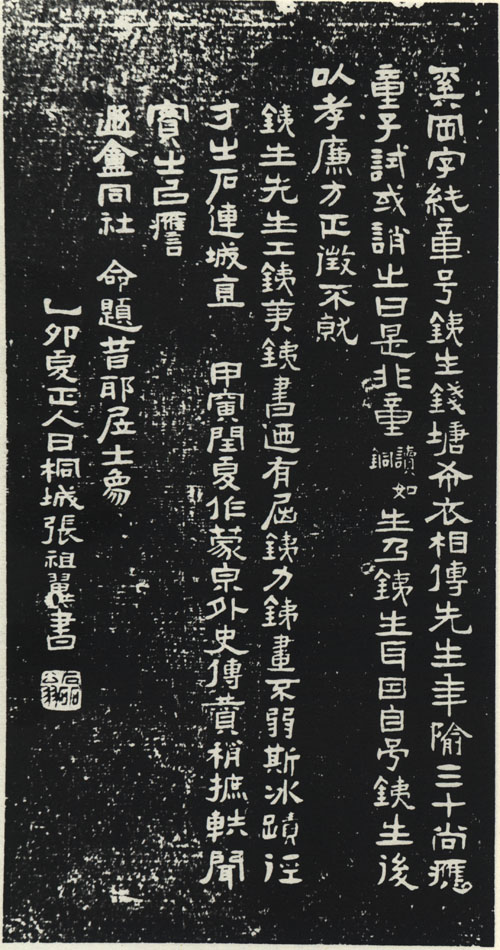 奚岡字純章号銕生錢塘布衣相傳先生年隃三十尚應
童子試或誚之曰是非童讀如銅生乃銕生耳因自号銕生後
以孝廉方正徵不就
銕生先生工銕筆銕書迺有屈銕力銕畫不弱斯冰蹟徑
寸之石連城直 甲寅閏夏作蒙泉外史傳贊稍摭軼聞
實之㠯譍
遯盦同社 命題昔耶居士象
乙卯夏正人日桐城張祖翼書